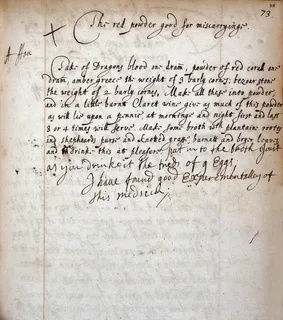 73
The red powder good for miscarrying
Take of Dragons blood one dram, powder of red corall one
dram, amber greece the weight of 3 barly corns, bezoar stone
the weight of 2 barly corns, Make all these into powder,
and in a little burnt Claret wine give as much of this powder
as will lye upon a pennie at mornings and night first and last
3 or 4 times will serve. Make some broth with plantaine roots
and shepheards purse and knotted grass burnett and bryer leaves
and drink this at pleasure put in to the broth
as you drink it the tredes of 9 Eggs,
I have found good Experementally of
this medicin,